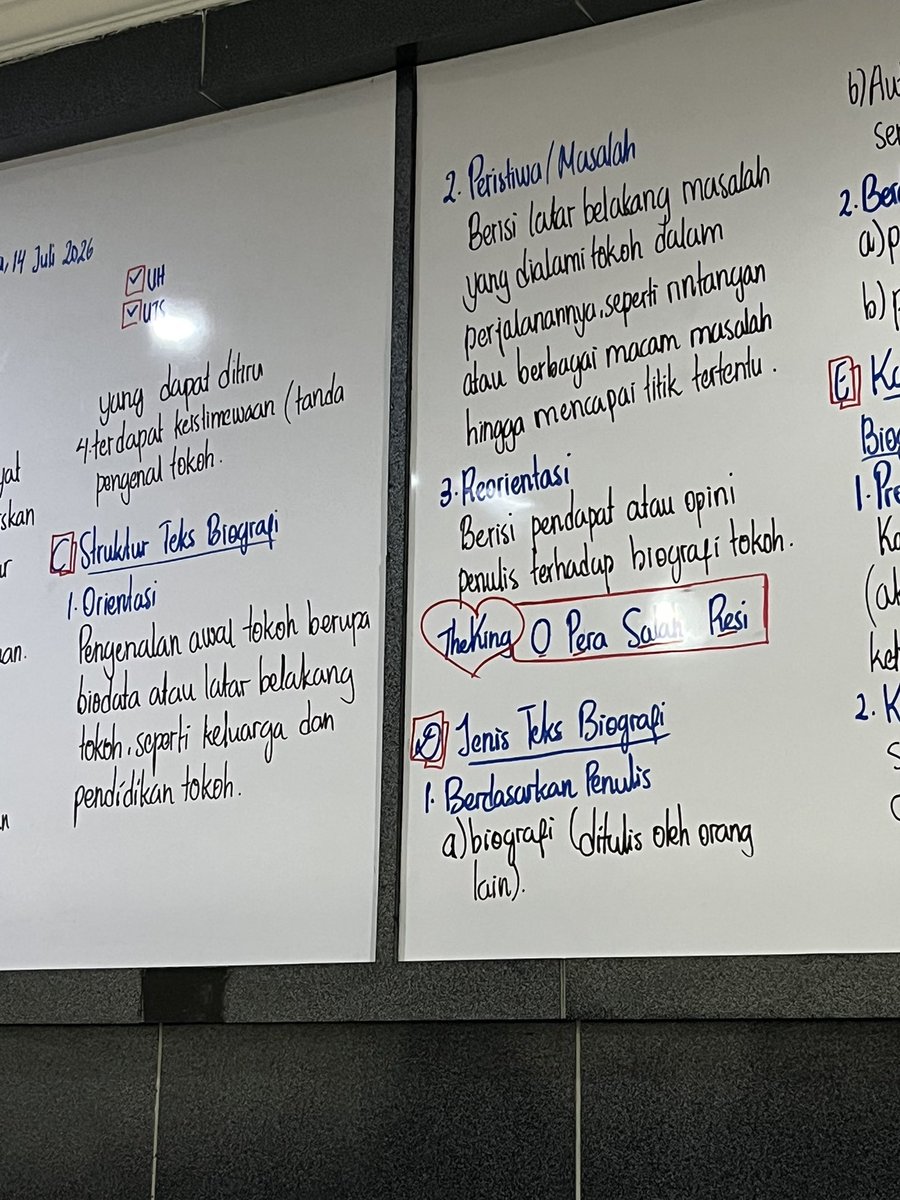 14 Juli 2026
UH
UTS
yang dapat ditiru
4. terdapat keistimewaan (tanda
pengenal tokoh.
C Struktur Teks Biografi
1. Orientasi
Pengenalan awal tokoh berupa
biodata atau latar belakang
tokoh, seperti keluarga dan
pendidikan tokoh.
2. Peristiwa/Masalah
Berisi latar belakang masalah
yang dialami tokoh dalam
perjalanannya, seperti rintangan
atau berbagai macam masalah
hingga mencapai titik tertentu.
3. Reorientasi
Berisi pendapat atau opini
penulis terhadap biografi tokoh.
TheKing O Pera Salah Resi
D Jenis Teks Biografi
1. Berdasarkan Penulis
a) biografi (ditulis oleh orang
lain).
b)
2.
a)
b)
E
1.
2.